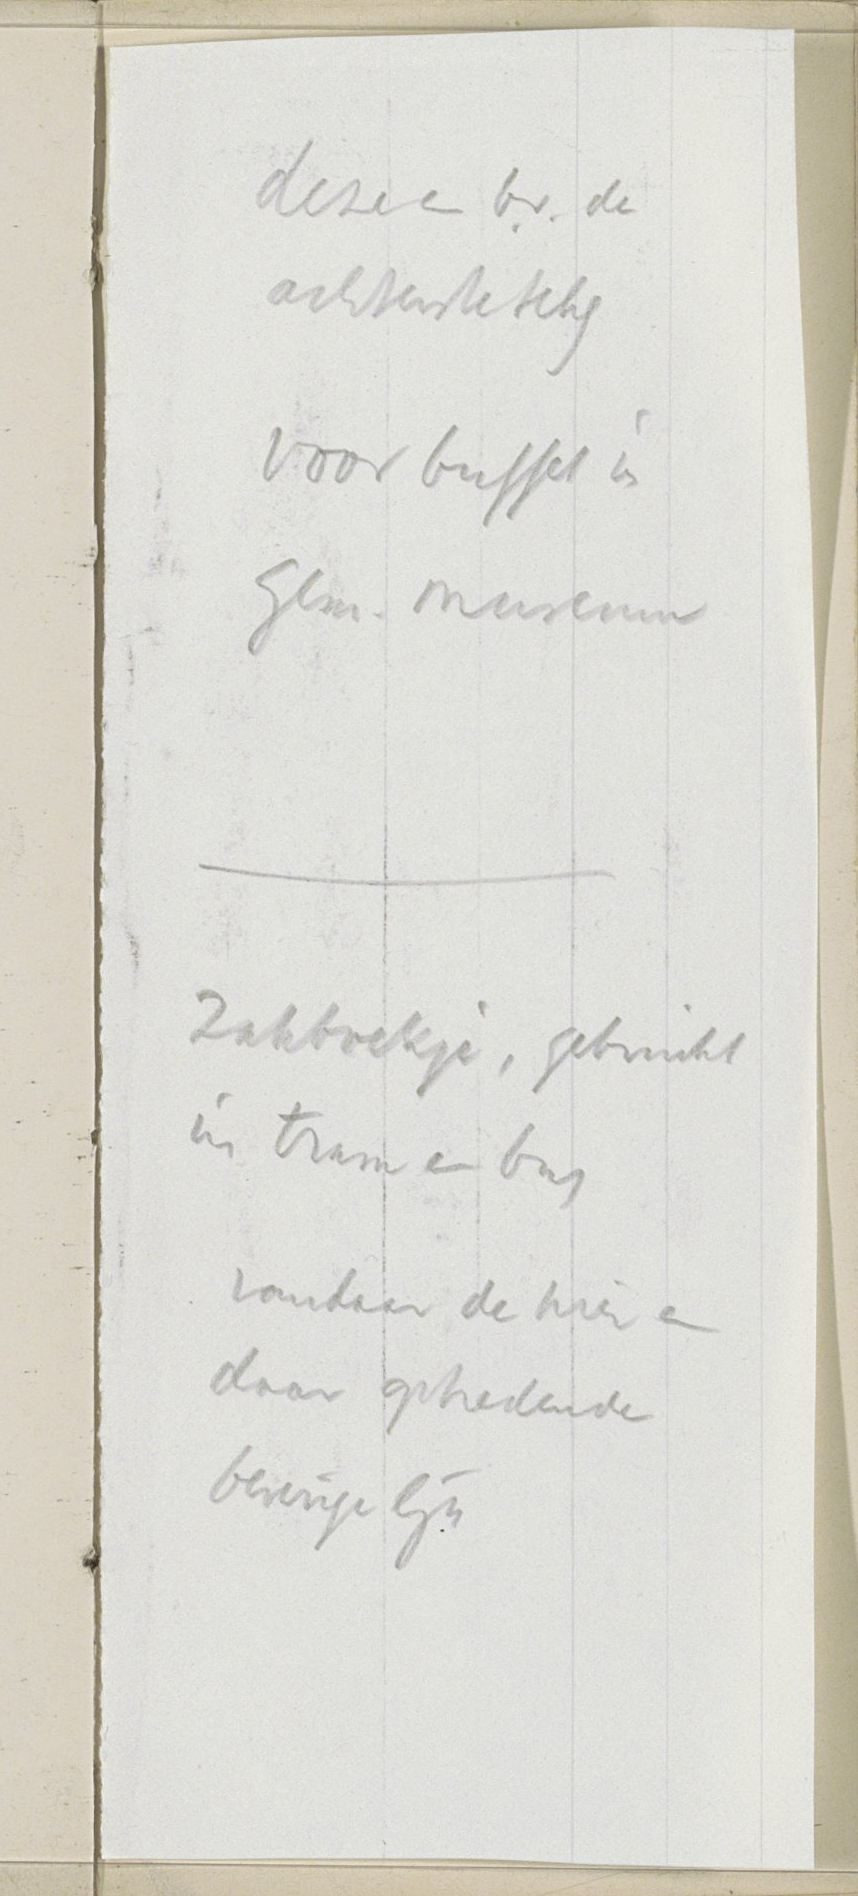 deze en b.v. de
achterste tekg
voor buffet in
Gem. Museum
Zakboekje, gebruikt
in tram en bus
vandaar de hier en
daar optredende
beverige lijn